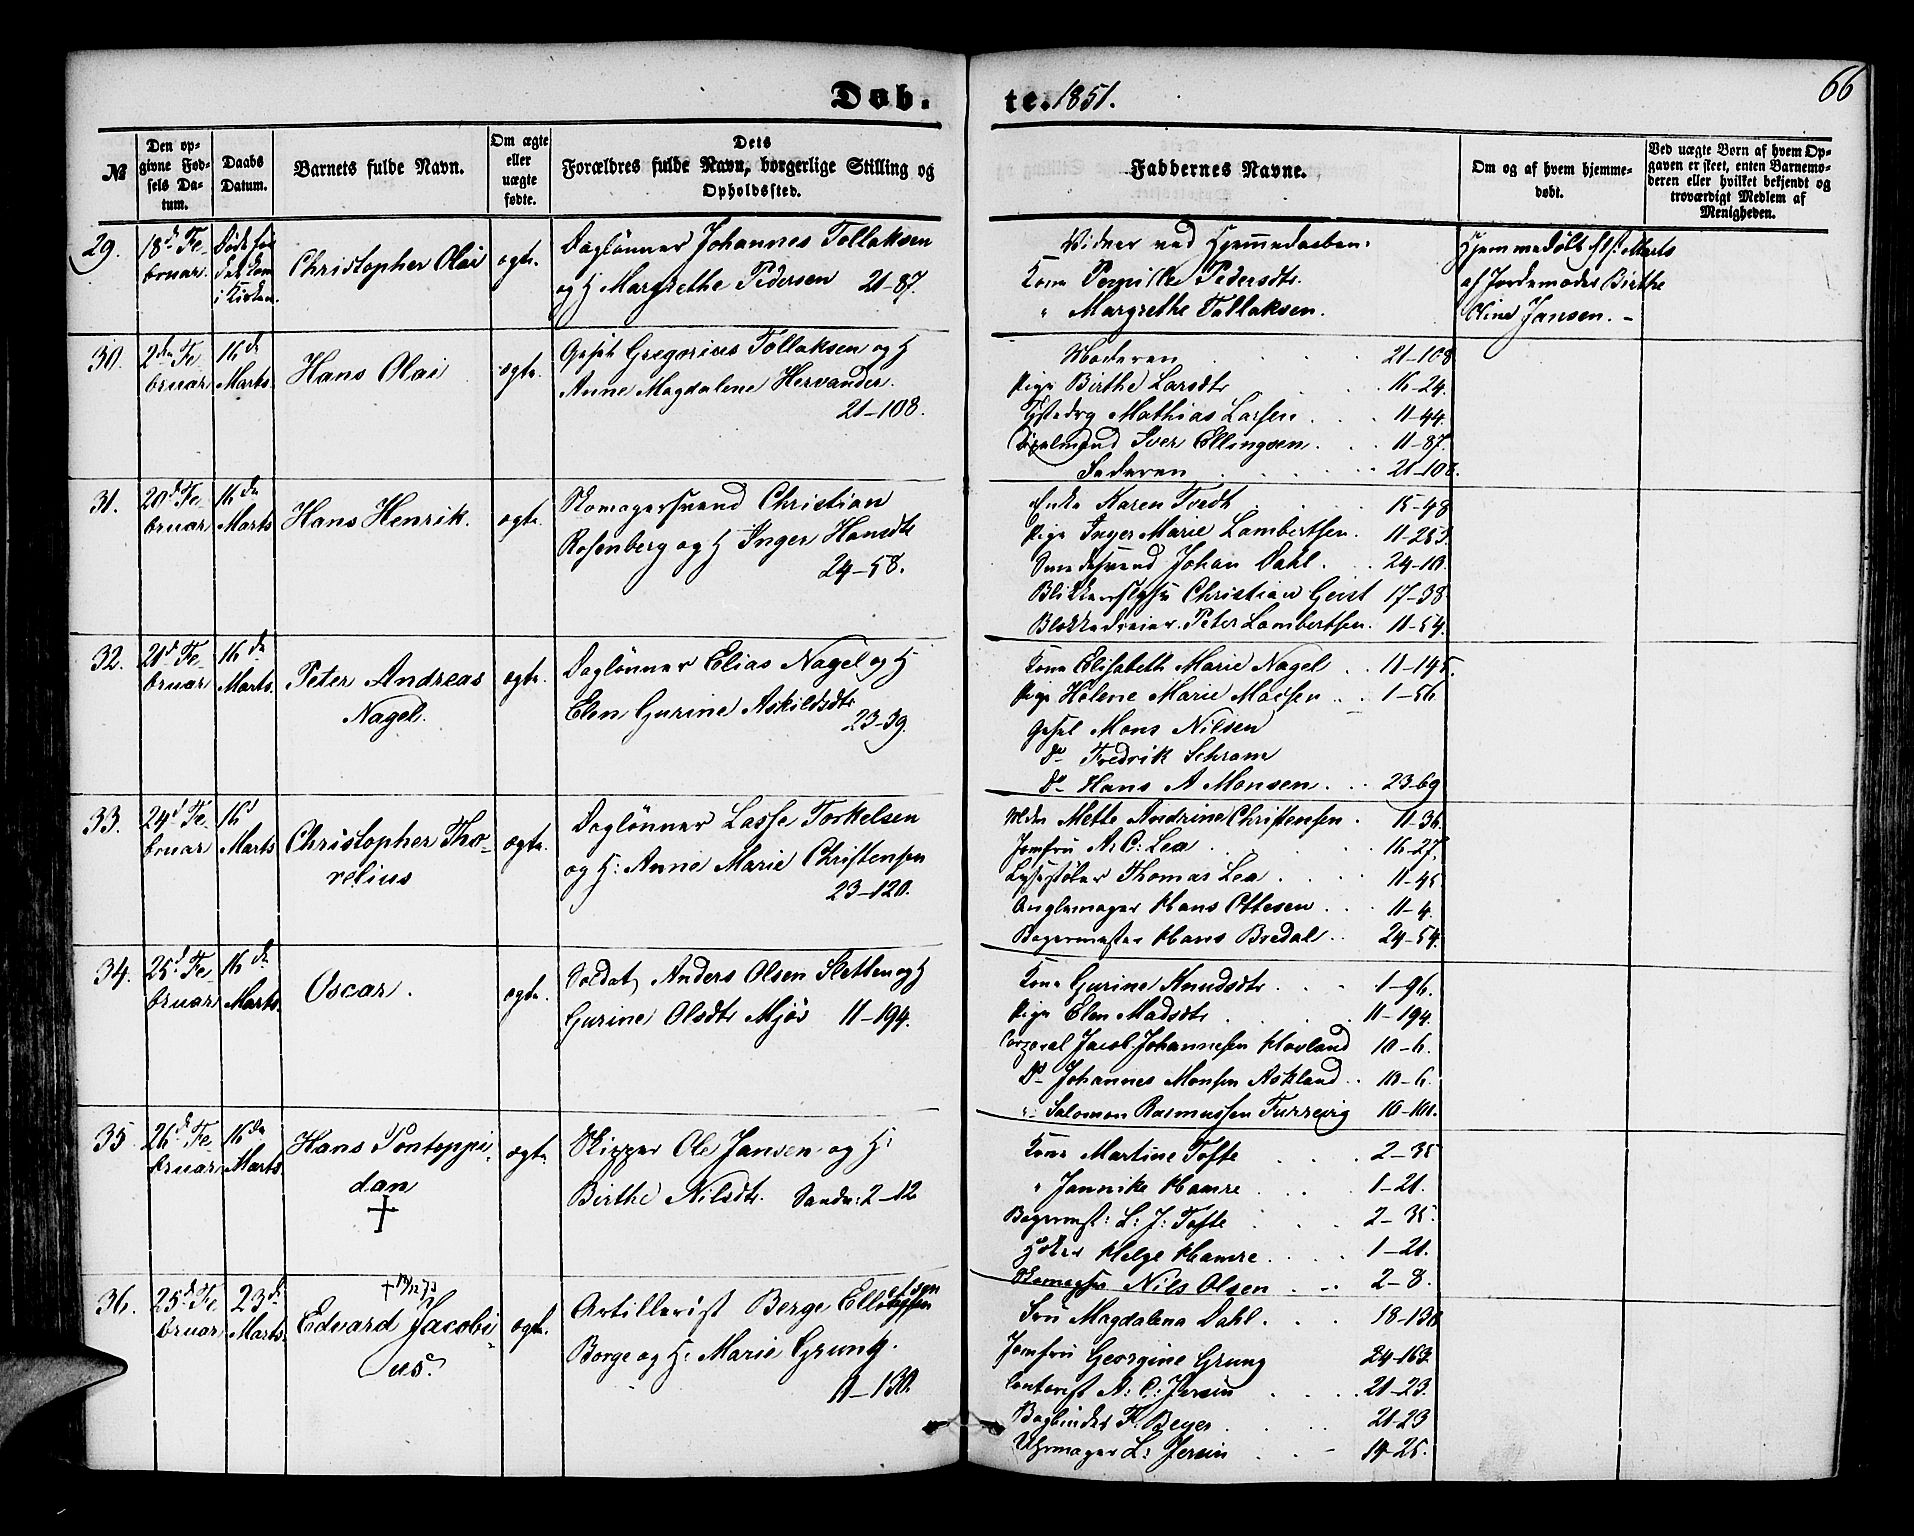 Døb.
te. 1851.
66
№
Den op-
givne Fød-
sels Da-
tum.
Daabs
Datum.
Barnets fulde Navn.
Om ægte
eller
uægte
fødte.
Dets
Forældres fulde Navn, borgerlige Stilling og
Opholdssted.
Faddernes Navne.
Om og af hvem hjemme-
døbt.
Ved uægte Børn af hvem Op-
gaven er skeet, enten Barnemo-
deren eller hvilket bekjendt og
troværdigt Medlem af
Menigheden.
29.
18de Fe-
bruar.
Døde før
det kom
i Kirken.
Christopher Olai
ægte.
Daglønner Johannes Tollaksen
og H Margrethe Pedersen 21-87.
Vidner ved Hjemmedaaben:
Kone Pernille Pedersdtr.
" Margrethe Tollaksen.
Hjemmedøbt Marts
af Jordemoder Birthe
Oline Jansen. -
30.
2den Fe-
bruar
16de
Marts.
Hans Olai
ægte.
Gesel Gregorius Tollaksen og H
Anne Magdalene Hervander.
21-108.
Moderen 21-108
Pige Birthe Larsdtr 16-24.
Mathias Larsen 11-44.
Iver Ellingsen 11-87.
Faderen 21-108.
31.
20de Fe-
bruar
16de
Marts
Hans Henrik.
ægte.
Skomagersvend Christian
Rosenberg og H Inger Hansdtr
24-58.
Enke Karen Tvedt 15-48
Pige Inger Marie Lambertsen. 11-253.
Smedesvend Johan Dahl. 24-10.
Blikkenslager Christian Geist 17-38
Blokkedreier Peter Lambertsen. 11-54.
32.
20de Fe-
bruar
16de
Marts.
Peter Andreas
Nagel.
ægte.
Daglønner Elias Nagel og H
Elen Gurine Askildsdtr
23-39.
Kone Elisabeth Marie Nagel 11-195.
Pige Helene Marie Madsen 1-56
Gesel Mons Nilsen
Do Fredrik Schram
Do Hans A Monsen 23-69
33.
24de Fe-
bruar
16de
Marts
Christopher Tho-
relius
ægte.
Daglønner Lasse Torkelsen
og H: Anne Marie Christensen
23-120.
Mette Andrine Christensen. 11-36.
Jomfru A: C: Lea 16-27.
Lysestøber Thomas Lea 11-45
Anglemager Hans Ottesen 11-4.
Bagermester Hans Bredal 24-54.
34.
25de Fe-
bruar
16de
Marts.
Oscar.
ægte.
Soldat Anders Olsen Sletten og H
Gurine Olsdtr Mjøs 11-194.
Kone Gurine Knudsdtr 1-96.
Pige Elen Madsdtr 11-194.
Corporal Jacob Johannesen Hovland 10-6.
Do Johannes Monsen Askland 10-6.
" Salomon Rasmussen Furrevig 10-101.
35
26de Fe-
bruar
16de
Marts.
Hans Pontoppi-
dan
ægte
Skipper Ole Jansen og H:
Birthe Nilsdtr. Sandv: 2-12
Kone Martine Tofte 2-35
" Jannike Hamre 1-21.
Bagermst: L: J: Tofte 2-35.
Høker Helge Hamre 1-21.
Skomager Nils Olsen 2-8.
36.
25de Fe-
bruar
23de
Marts.
Edvard Jacobi-
us.
ægte.
Artillerist Berge
Borge og H: Marie Grung.
11-130.
Fru Magdalena Dahl. 18-138
Jomfru Georgine Grung 24-163.
Contorist A: C: Jersin 21-23.
Bogbinder F. Beyer 21-23
Uhrmager L: Jersin 14-25.